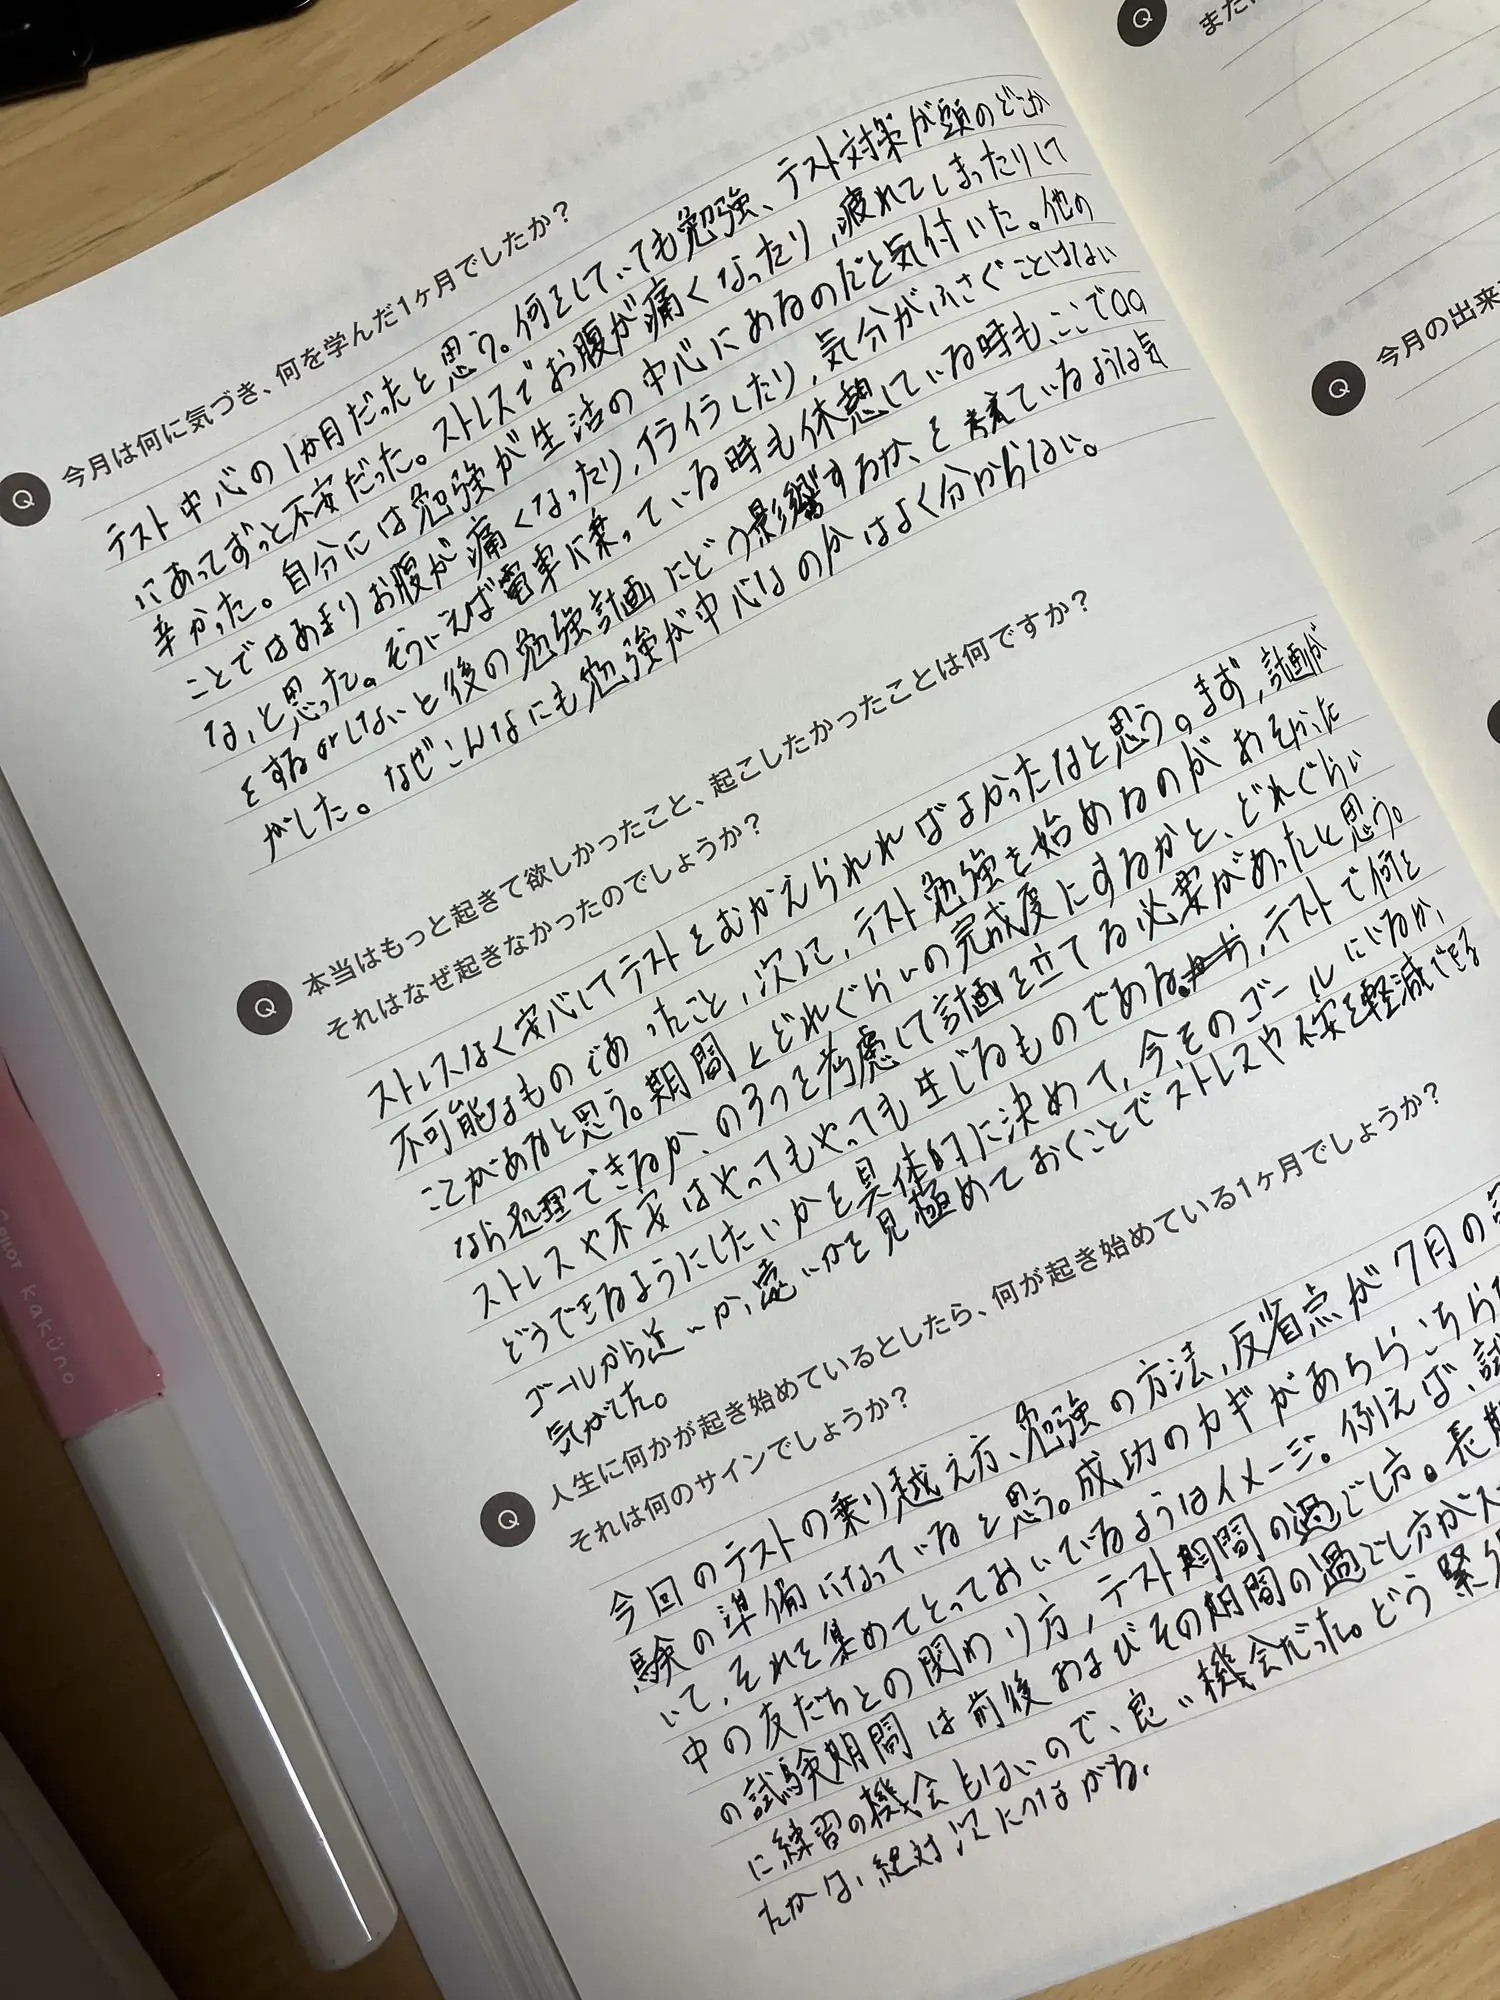 Q 今月は何に気づき、何を学んだ1ヶ月でしたか？
テスト中心の1か月だったと思う。何をしていても勉強、テスト対策が頭のどこか
にあってずっと不安だった。ストレスでお腹が痛くなったり,疲れてしまったりして
辛かった。自分には勉強が生活の中心にあるのだと気付いた。他の
ことではあまりお腹が痛くなったり,イライラしたり,気分がふさぐことはない
な,と思った。そういえば電車に乗っている時も休憩している時も、ここで○○
をするorしないと後の勉強計画にどう影響するか、を考えているような気
がした。なぜこんなにも勉強が中心なのかはよく分からない。
Q 本当はもっと起きて欲しかったこと、起こしたかったことは何ですか？
それはなぜ起きなかったのでしょうか？
ストレスなく安心してテストをむかえられればよかったなと思う。まず,計画が
不可能なものであったこと,次に,テスト勉強を始めるのがおそかった
ことがあると思う。期間とどれぐらいの完成度にするかと、どれぐらい
なら処理できるか、の3つを考慮して計画を立てる必要があったと思う。
ストレスや不安はどうしても生じるものである。,テストで何を
どうできるようにしたいかを具体的に決めて,今,そのゴールにいるか,
ゴールから近いか,遠いかを見極めておくことでストレスや不安を軽減できる
気がした。
Q 人生に何かが起き始めているとしたら、何が起き始めている1ヶ月でしょうか？
それは何のサインでしょうか？
今回のテストの乗り越え方、勉強の方法,反省点が7月の試
験の準備になっていると思う。成功のカギがあちらこちら
いて,それを集めてとっておいているようなイメージ。例えば,試
中の友だちとの関わり方,テスト期間の過ごし方。長期
の試験期間は前後およびその期間の過ごし方がス
に練習の機会もないので、良い機会だった。どう緊
たかは,絶対次につながる,
Q また
Q 今月の出来
PILOT kaküno